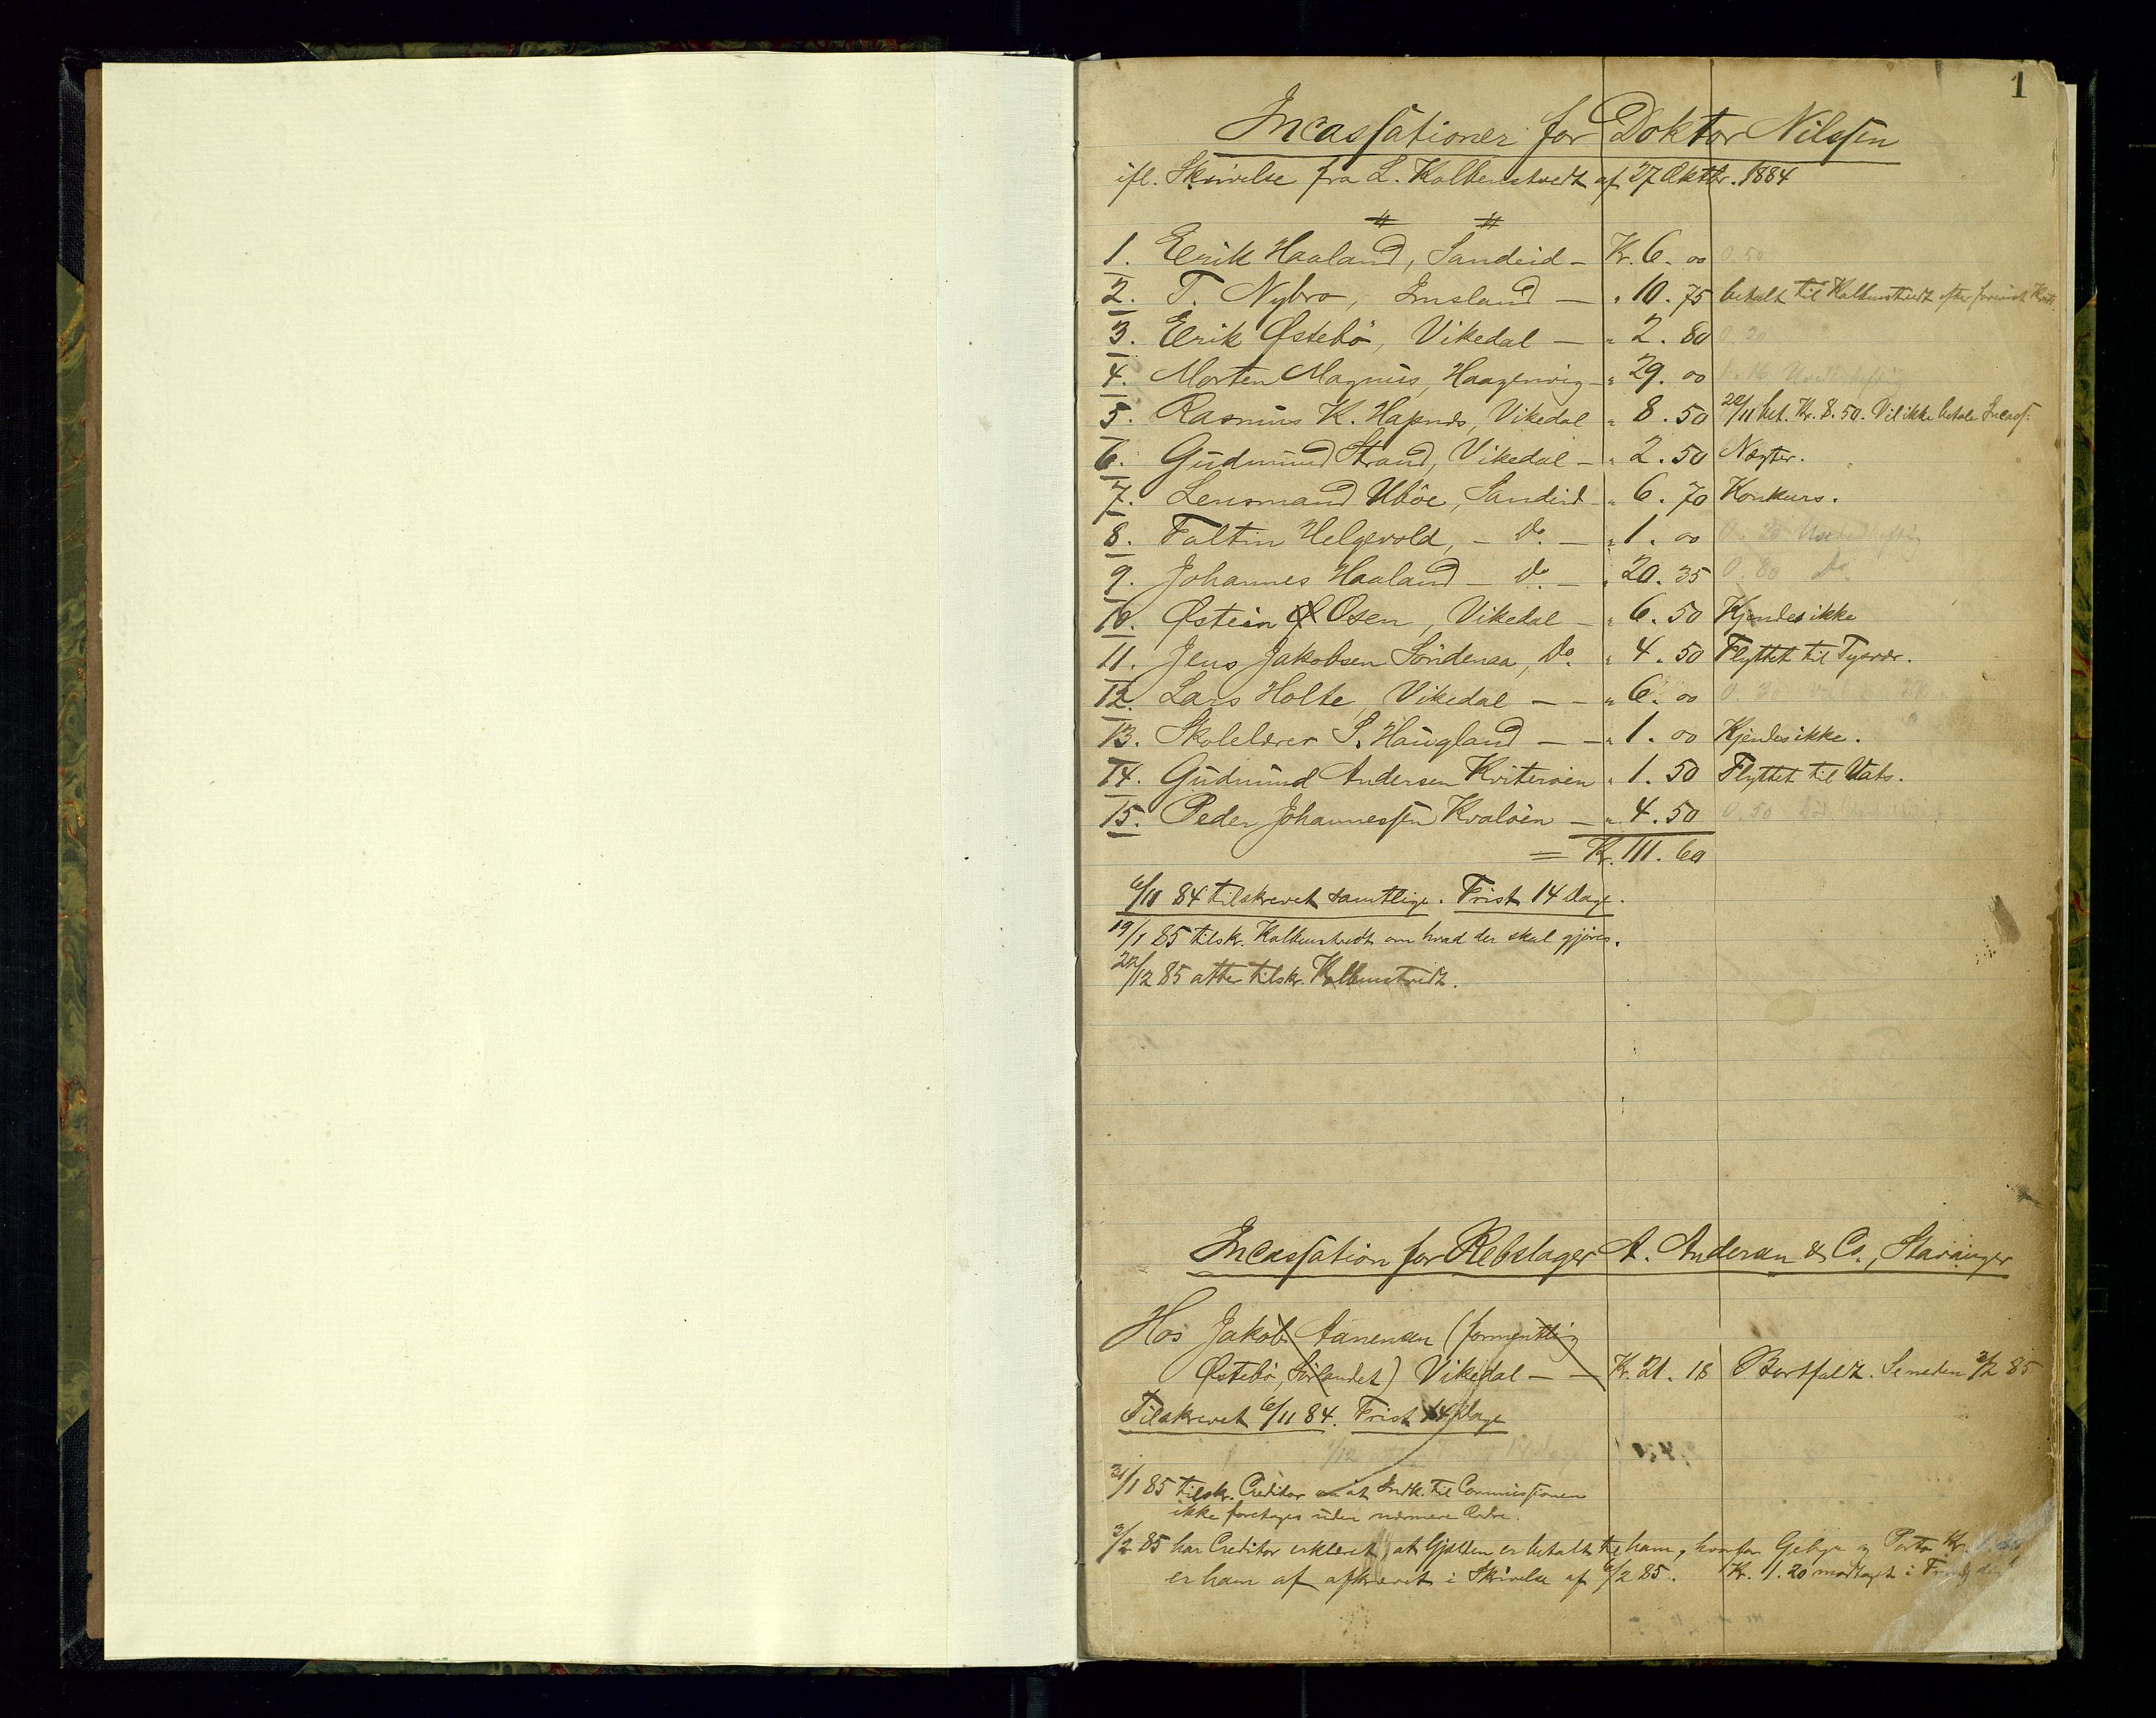 1
Incassationer for Doktor Nilssen
ifl. Skrivelse fra L. Kolbenstvedt af 27 Oktbr. 1884
1. Erik Haaland, Sandeid - Kr. 6. 00 0.50
2. T. Nybro, Imsland - " 10. 75 betalt til Kolbenstvedt efter
3. Erik Østebö, Vikedal - " 2. 80 0.20
4. Morten Magnus, Haagenvig - " 29. 00
5. Rasmus K. Hapnes, Vikedal " 8. 50 22/11 bet. Kr. 8.50. Vil ikke betale Incass.
6. Gudmund Strand, Vikedal - " 2. 50 Nægter.
7. Lensmand Uböe, Sandeid - " 6. 70 Konkurs.
8. Faltin Helgevold, - Do. - " 1. 00 0. 20 Uvederheftig
9. Johannes Haaland - Do. - " 20. 35 0. 80 Do.
10. Østein Osen, Vikedal - " 6. 50 Kjendes ikke
11. Jens Jakobsen Söndenaa, Do. " 4. 50 Flyttet til Tysvær.
12. Lars Holte, Vikedal - - " 6. 00 0. 30
13. Skolelærer S. Haugland - - " 1. 00 Kjendes ikke.
14. Gudmund Andersen Kviteröen " 1. 50 Flyttet til Vats.
15. Peder Johannessen Kvalöen - " 4. 50 0. 50
= Kr. 111. 60
6/11 84 tilskrevet samtlige. Frist 14 Dage.
19/1 85 tilskr. Kolbenstvedt om hvad der skal gjöres.
22/12 85 atter tilskr. Kolbenstvedt.
Incassation for Rebslager A. Andersen & Co., Stavanger
Hos Jakob Aanensen (formentlig
Østebö, Sörlandet) Vikedal - - Kr. 21. 18 Bortfaldt. Se neden 3/2 85
Tilskrevet 6/11 84. Frist 14 Dage
31/1 85 tilskr. Creditor at Indk. til Commissionen
ikke foretages uden nærmere Ordre.
3/2 85 har Creditor erklæret, at Gjælden er betalt til ham, hvorfor Gebyr og Porto Kr.
er ham af afkrævet i Skrivelse af 6/2 85. Kr. 1.20 modtaget i